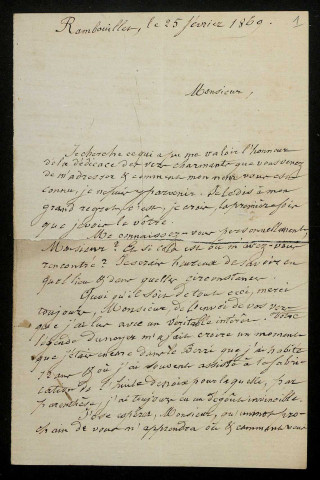 Rambouillet, le 25 février 1860.
1
Monsieur,
Je cherche ce qui a pu me valoir l'honneur
de la dédicace des vers charmants que vous venez
de m'adresser & comment mon nom vous est
connu, je n'y puis parvenir. Je le dis à mon
grand regret c'est, je crois, la première fois
que je vois le vôtre.
Me connaissez-vous personnellement
Monsieur? & si cela est où m'avez-vous
rencontré? Je serais heureux de savoir en
quel lieu & dans quelles circonstances
Quoi qu'il soit de tout ceci, merci
toujours, Monsieur, de l'envoi de vos vers
que j'ai lus avec un véritable intérêt. Votre
m'a fait croire un moment
que j'étais encore dans le Berri que j'ai habité
ans & où j'ai souvent assisté à la fabri-
cation de l'huile de noix pour laquelle, par
parenthèse, j'ai toujours eu un dégoût invincible.
J'ose espérer, Monsieur, qu'un mot pro-
chain de vous m'apprendra où & comment vous